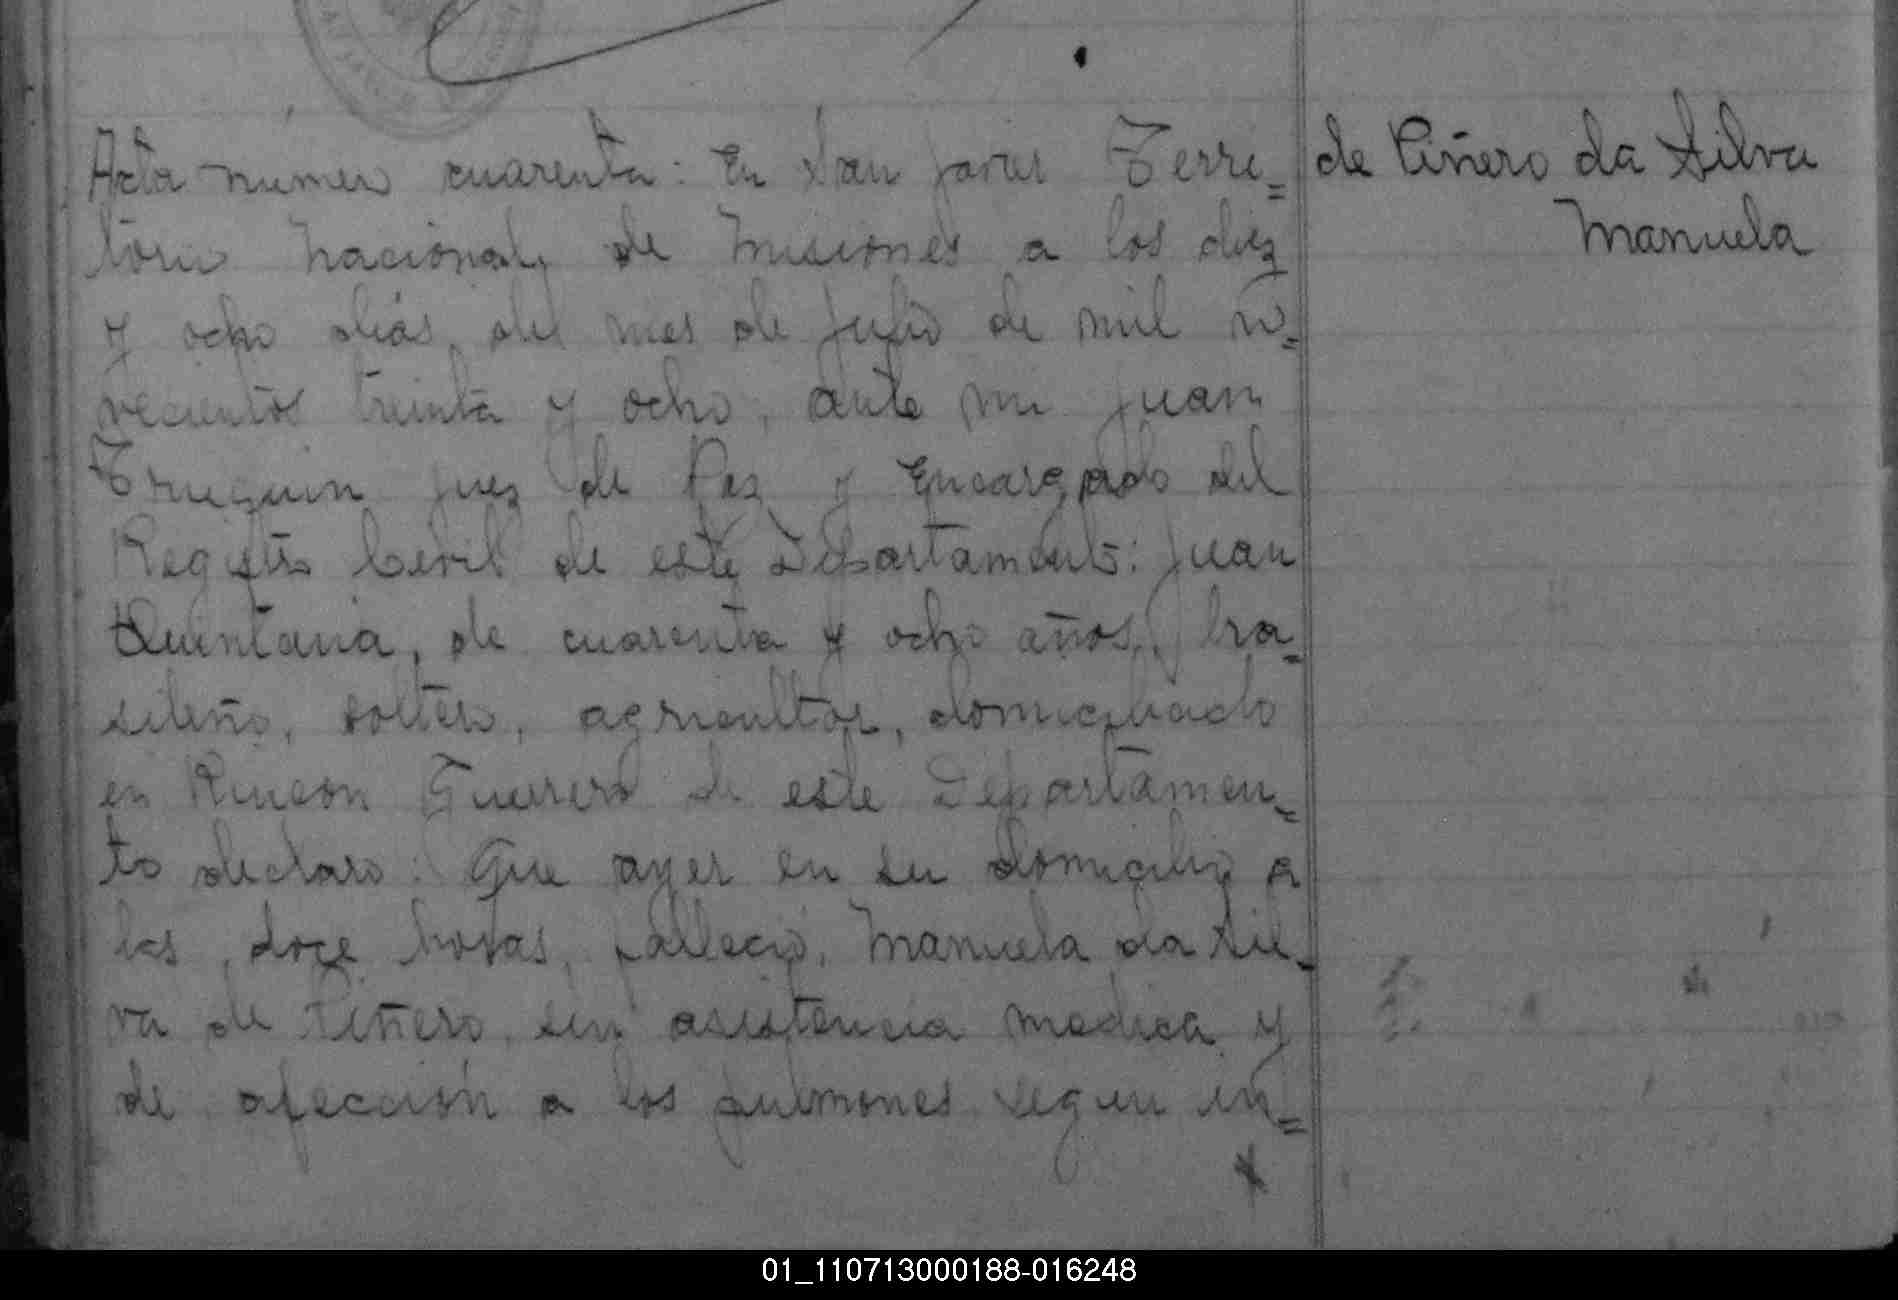 Acta número cuarenta: En San Javier Terri=
torio Nacional, de Misiones a los diez
y ocho dias, del mes de Julio de mil no=
vecientos treinta y ocho, ante mi Juan
Truquin Juez de Paz y Encargado del
Registro Civil de este Departamento: Juan
Quintana, de cuarenta y ocho años, bra=
sileño, soltero, agricultor, domiciliado
en Rincon Guerrero de este Departamen=
to declaro: Que ayer en su domicilio a
las doce horas, fallecio, Manuela da Sil=
va de Piñero, sin asistencia medica y
de afección a los pulmones segun in=
de Piñero da Silva
Manuela
01_110713000188-016248